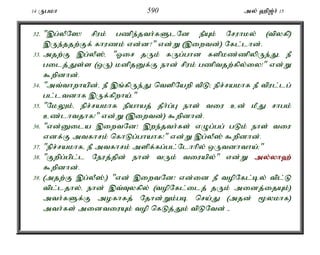 14 ருபமா 590 அல் ஹிஜ்ர் 15
32. "இப்லீஸே! சிரம் பணிந்தவர்களுடனே நீயும் சேராமல் (விலகி)
இருந்ததற்குக் காரணம் என்ன?" என்று (இறைவன்) கேட்டான்.
33. அதற்கு இப்லீஸ்; "ஓசை தரும் கருப்பான களிமண்ணிலிருந்து, நீ
படைத்துள்ள (ஒரு) மனிதனுக்கு நான் சிரம் பணிவதற்கில்லை!" என்று
கூறினான்.
34. "அவ்வாறாயின், நீ இங்கிருந்து வெளியேறி விடு; நிச்சயமாக நீ விரட்டப்
பட்டவனாக இருக்கிறாய்."
35. "மேலும், நிச்சயமாக நியாயத் தீர்ப்பு நாள் வரை உன் மீது சாபம்
உண்டாவதாக!" என்று (இறைவன்) கூறினான்.
36. "என்னுடைய இறைவனே! இறந்தவர்கள் எழுப்பப் படும் நாள் வரை
எனக்கு அவகாசம் கொடுப்பாயாக!" என்று இப்லீஸ் கூறினான்.
37. "நிச்சயமாக, நீ அவகாசம் அளிக்கப்பட்டோரில் ஒருவனாவாய்;"
38. "குறிப்பிட்ட நேரத்தின் நாள் வரும் வரையில்" என்று அல்லாஹ்
கூறினான்.
39. (அதற்கு இப்லீஸ்,) "என் இறைவனே! என்னை நீ வழிகேட்டில் விட்டு
விட்டதால், நான் இவ்வுலகில் (வழிகேட்டைத் தரும் அனைத்தையும்)
அவர்களுக்கு அழகாகத் தோன்றும்படி செய்து (அதன் மூலமாக)
அவர்கள் அனைவரையும் வழி கெடுத்தும் விடுவேன் _